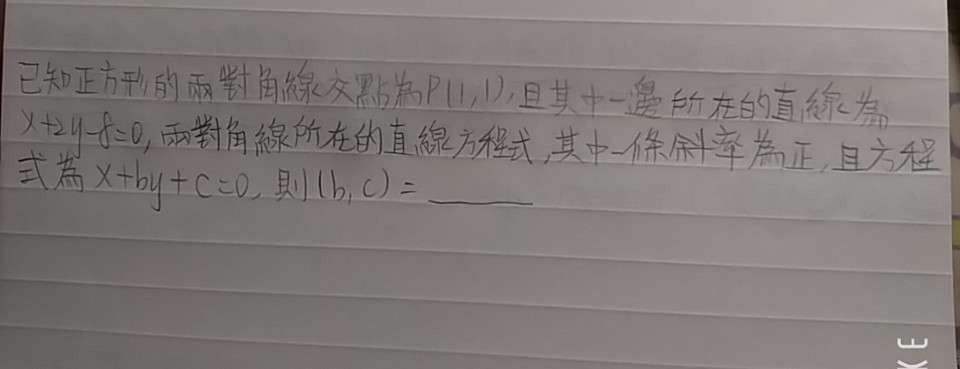 已知正方形的兩對角線交點為P(1,1),且其中一邊所在的直線為
x+2y-8=0,兩對角線所在的直線方程式,其中一條斜率為正,且方程
式為x+by+c=0,則(b,c)=______
KE